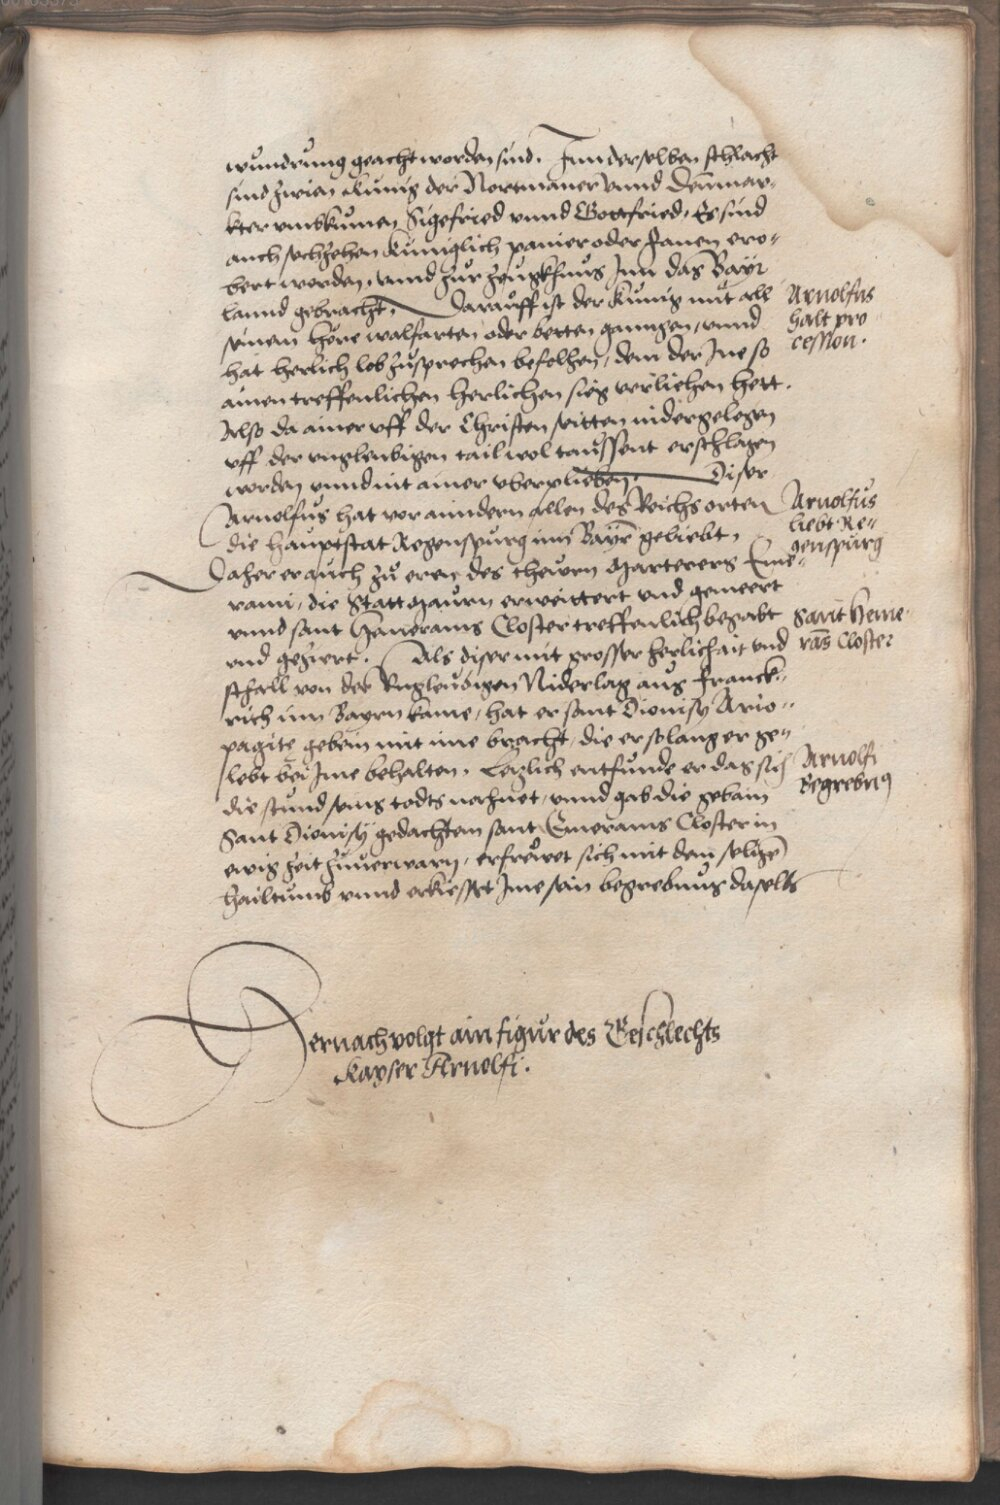 wundrung geacht worden sind. Inn derselben schlacht
sind zwien Kunig der Nortmaner vnnd Denmar-
kter vmbkumen Sigefried vnnd Gottfried, Es sind
auch sechzehen Kuniglich panier oder fanen ero-
bert worden, vnnd zur zeugkhnus Inn das Bayr
lannd gebracht. Darauff ist der Kunig mit all
seinem höre walfarten oder betten ganngen, vnnd
hat herlich lob zusprechen befolhen, dem der Ine so
ainen treffenlichen herlichen sieg verliehen hett.
Also da ainer vff der Christen seitten nidergelegen
vff der vngleubigen tail wol taussent erschlagen
worden vnnd nit ainer vberplieben. Diser
Arnolfus halt pro
cession.
Arnolfus hat vor anndern allen des Reichs orten
die hauptstat Regenspurg inn Bayrn geliebt,
Daher er auch zu eren des theuren Marterers Eme-
rami, die Stattmaurn erweittert vnd gemeert
vnnd sant Haimerams Closter treffenlich begabt
vnd geziert. Als diser mit grosser herlichait vnd
schall von der Vngleubigen Niderlag aus Franck-
rich inn Bayrn kame, hat er sant Dionisy Ario-
pagite gebein mit ime bracht, die er solang er ge-
lebt bei Ime behalten. Letzlich entfunde er das sich
die stund seins todts nahnet, vnnd gab die gebain
Sant Dionisy gedachtem sant Emerams Closter in
ewig zeit zuuerwarn, erfrewet sich mit dem seligen
hailtumb vnnd erkiesset Ime sein begrebnus daselbs
Arnolfus
liebt Re-
genspurg
Sant Heme-
rās Closter
Arnolfi
Begrebnus
Hernach volgt ain figur des Geschlechts
Kayser Arnolfi.